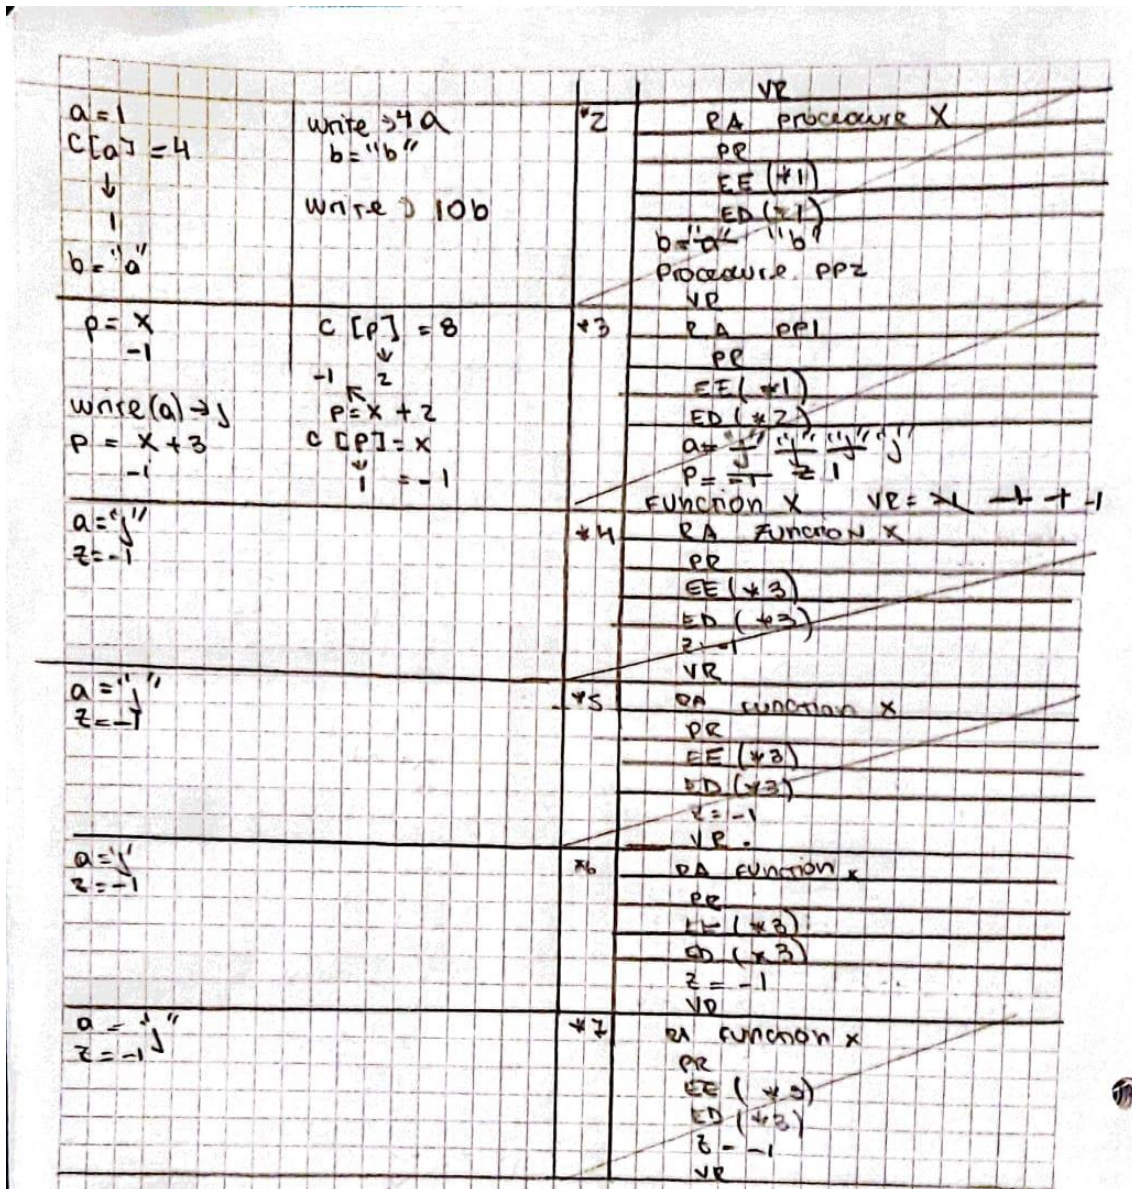 a = 1
C[a] = 4
↓
1
b = "a"
write → 4a
b = "b"
write → 10b
*2
VR
RA procedure X
PR
EE (*1)
ED (*1)
b = "a" "b"
Procedure PP2
VR
p = x
-1
write(a) → j
p = x + 3
-1
C [p] = 8
↓
-1 2
p = x + 2
C [p] = x
↓
1 = -1
*3
RA PP1
PR
EE (*1)
ED (*2)
a = "j" "j" "j" "j"
p = -1 2 1
Function X VR = -1 -1 -1
a = "j"
z = -1
*4
RA Function X
PR
EE (*3)
ED (*3)
z = -1
VR
a = "j"
z = -1
*5
RA Function X
PR
EE (*3)
ED (*3)
z = -1
VR
a = "j"
z = -1
*6
RA Function x
PR
EE (*3)
ED (*3)
z = -1
VR
a = "j"
z = -1
*7
RA Function x
PR
EE (*3)
ED (*3)
z = -1
VR